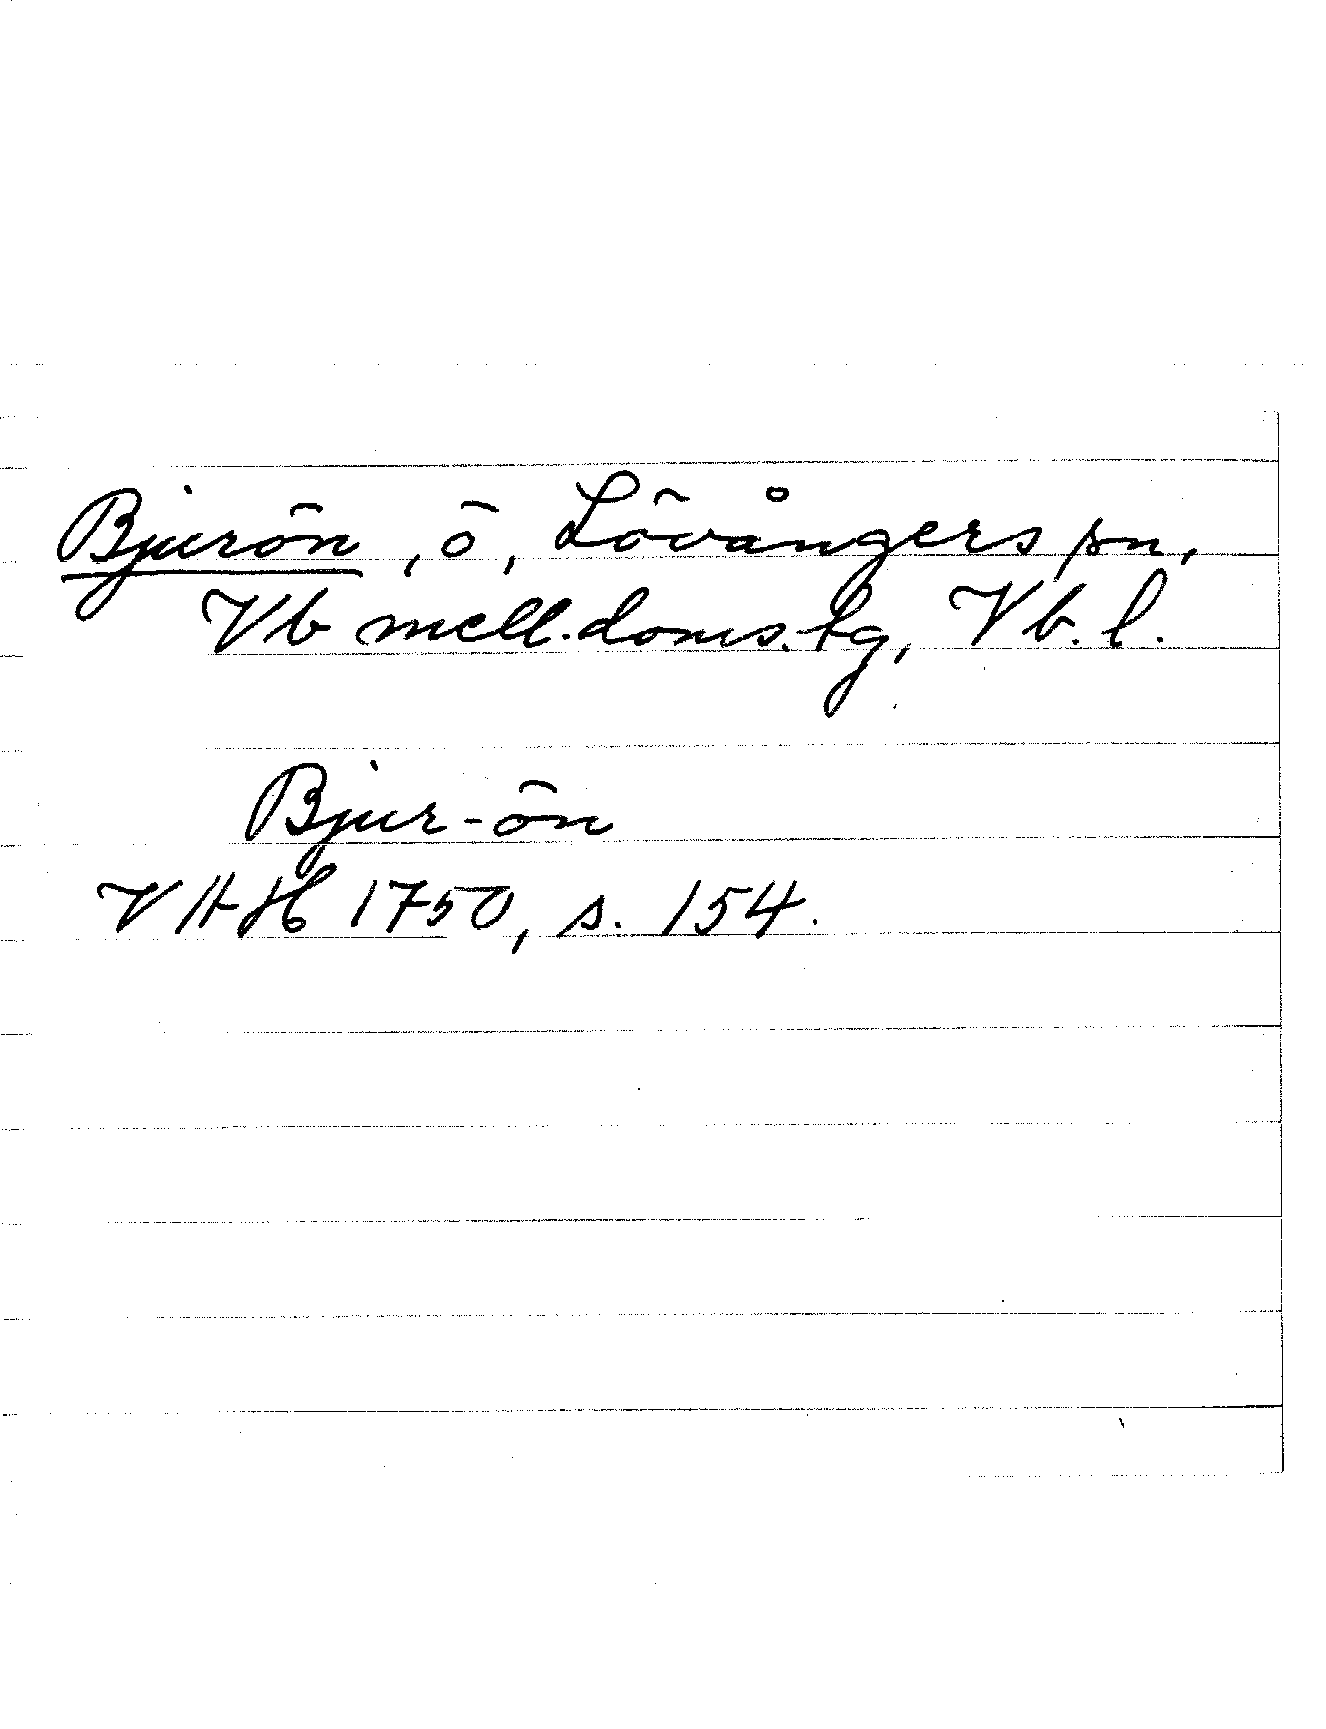 Bjurön, ö, Lövångers sn,
Vb mell. doms. tg, Vb. l.
Bjur-ön
VAH 1750, s. 154.